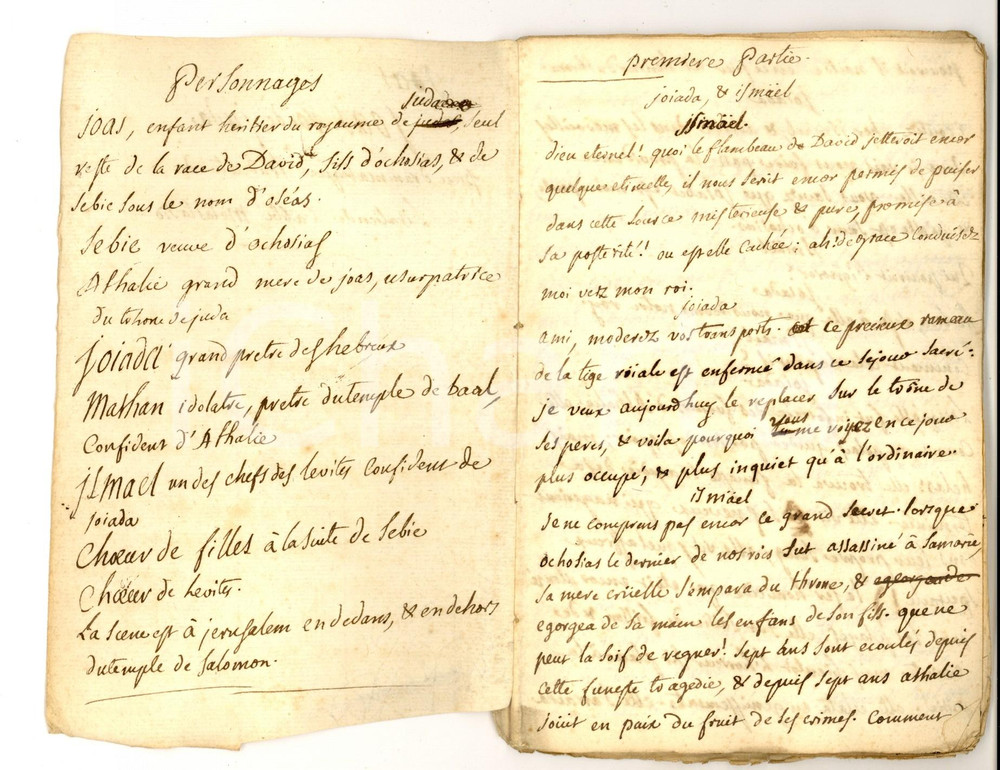 Personnages
joas, enfant heritier du royaume de juda, seul
reste de la race de David, fils d'ochosias, & de
sebie sous le nom d'oséas.
sebie veuve d'ochosias
Athalie grand mere de joas, usurpatrice
du trhone de juda
joiada grand pretre des hebreux
Mathan idolatre, pretre du temple de baal,
Confident d'Athalie
jsmael un des chefs des levites Confident de
joiada
Chœur de filles à la suite de sebie
Chœur de Levites.
La scene est à jerusalem en dedans, & en dehors
du temple de salomon.
premiere Partie.
joiada, & ismäel
jsmäel.
dieu eternel! quoi le flambeau de David jetteroit encor
quelque etincelle, il nous seroit encor permis de puiser
dans cette source misterieuse & pure, promise à
sa posterité! ou est elle cachée: ah! de grace conduisez
moi vers mon roi.
joiada
ami, moderez vos transports. ce precieux rameau
de la tige roiale est enfermé dans ce sejour sacré:
je veux aujourdhuy le replacer sur le trône de
ses peres, & voila pourquoi vous me voyez en ce jour
plus occupé, & plus inquiet qu'à l'ordinaire.
ismäel
je ne comprens pas encor ce grand secret. lorsque
ochosias le dernier de nos rois fut assassiné à samarie
sa mere crüelle s'empara du throne, & egorgea de
egorgea de sa main les enfans de son fils. que ne
peut la soif de regner! sept ans sont ecoulés depuis
cette funeste tragedie, & depuis sept ans athalie
joüit en paix du fruit de ses crimes. Comment